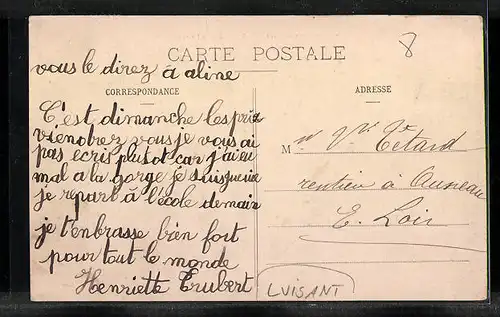 CARTE POSTALE
8
vous le direz à aline
CORRESPONDANCE
ADRESSE
C'est dimanche les prix
viendrez vous je vous ai
pas ecris plutot car j'ai eu
mal a la gorge je suis guérie
je repart à l'école demain
je t'enbrasse bien fort
pour tout le monde
Henriette Trubert
M Vve Tetard
rentier à Auneau
E. Loir
LUISANT